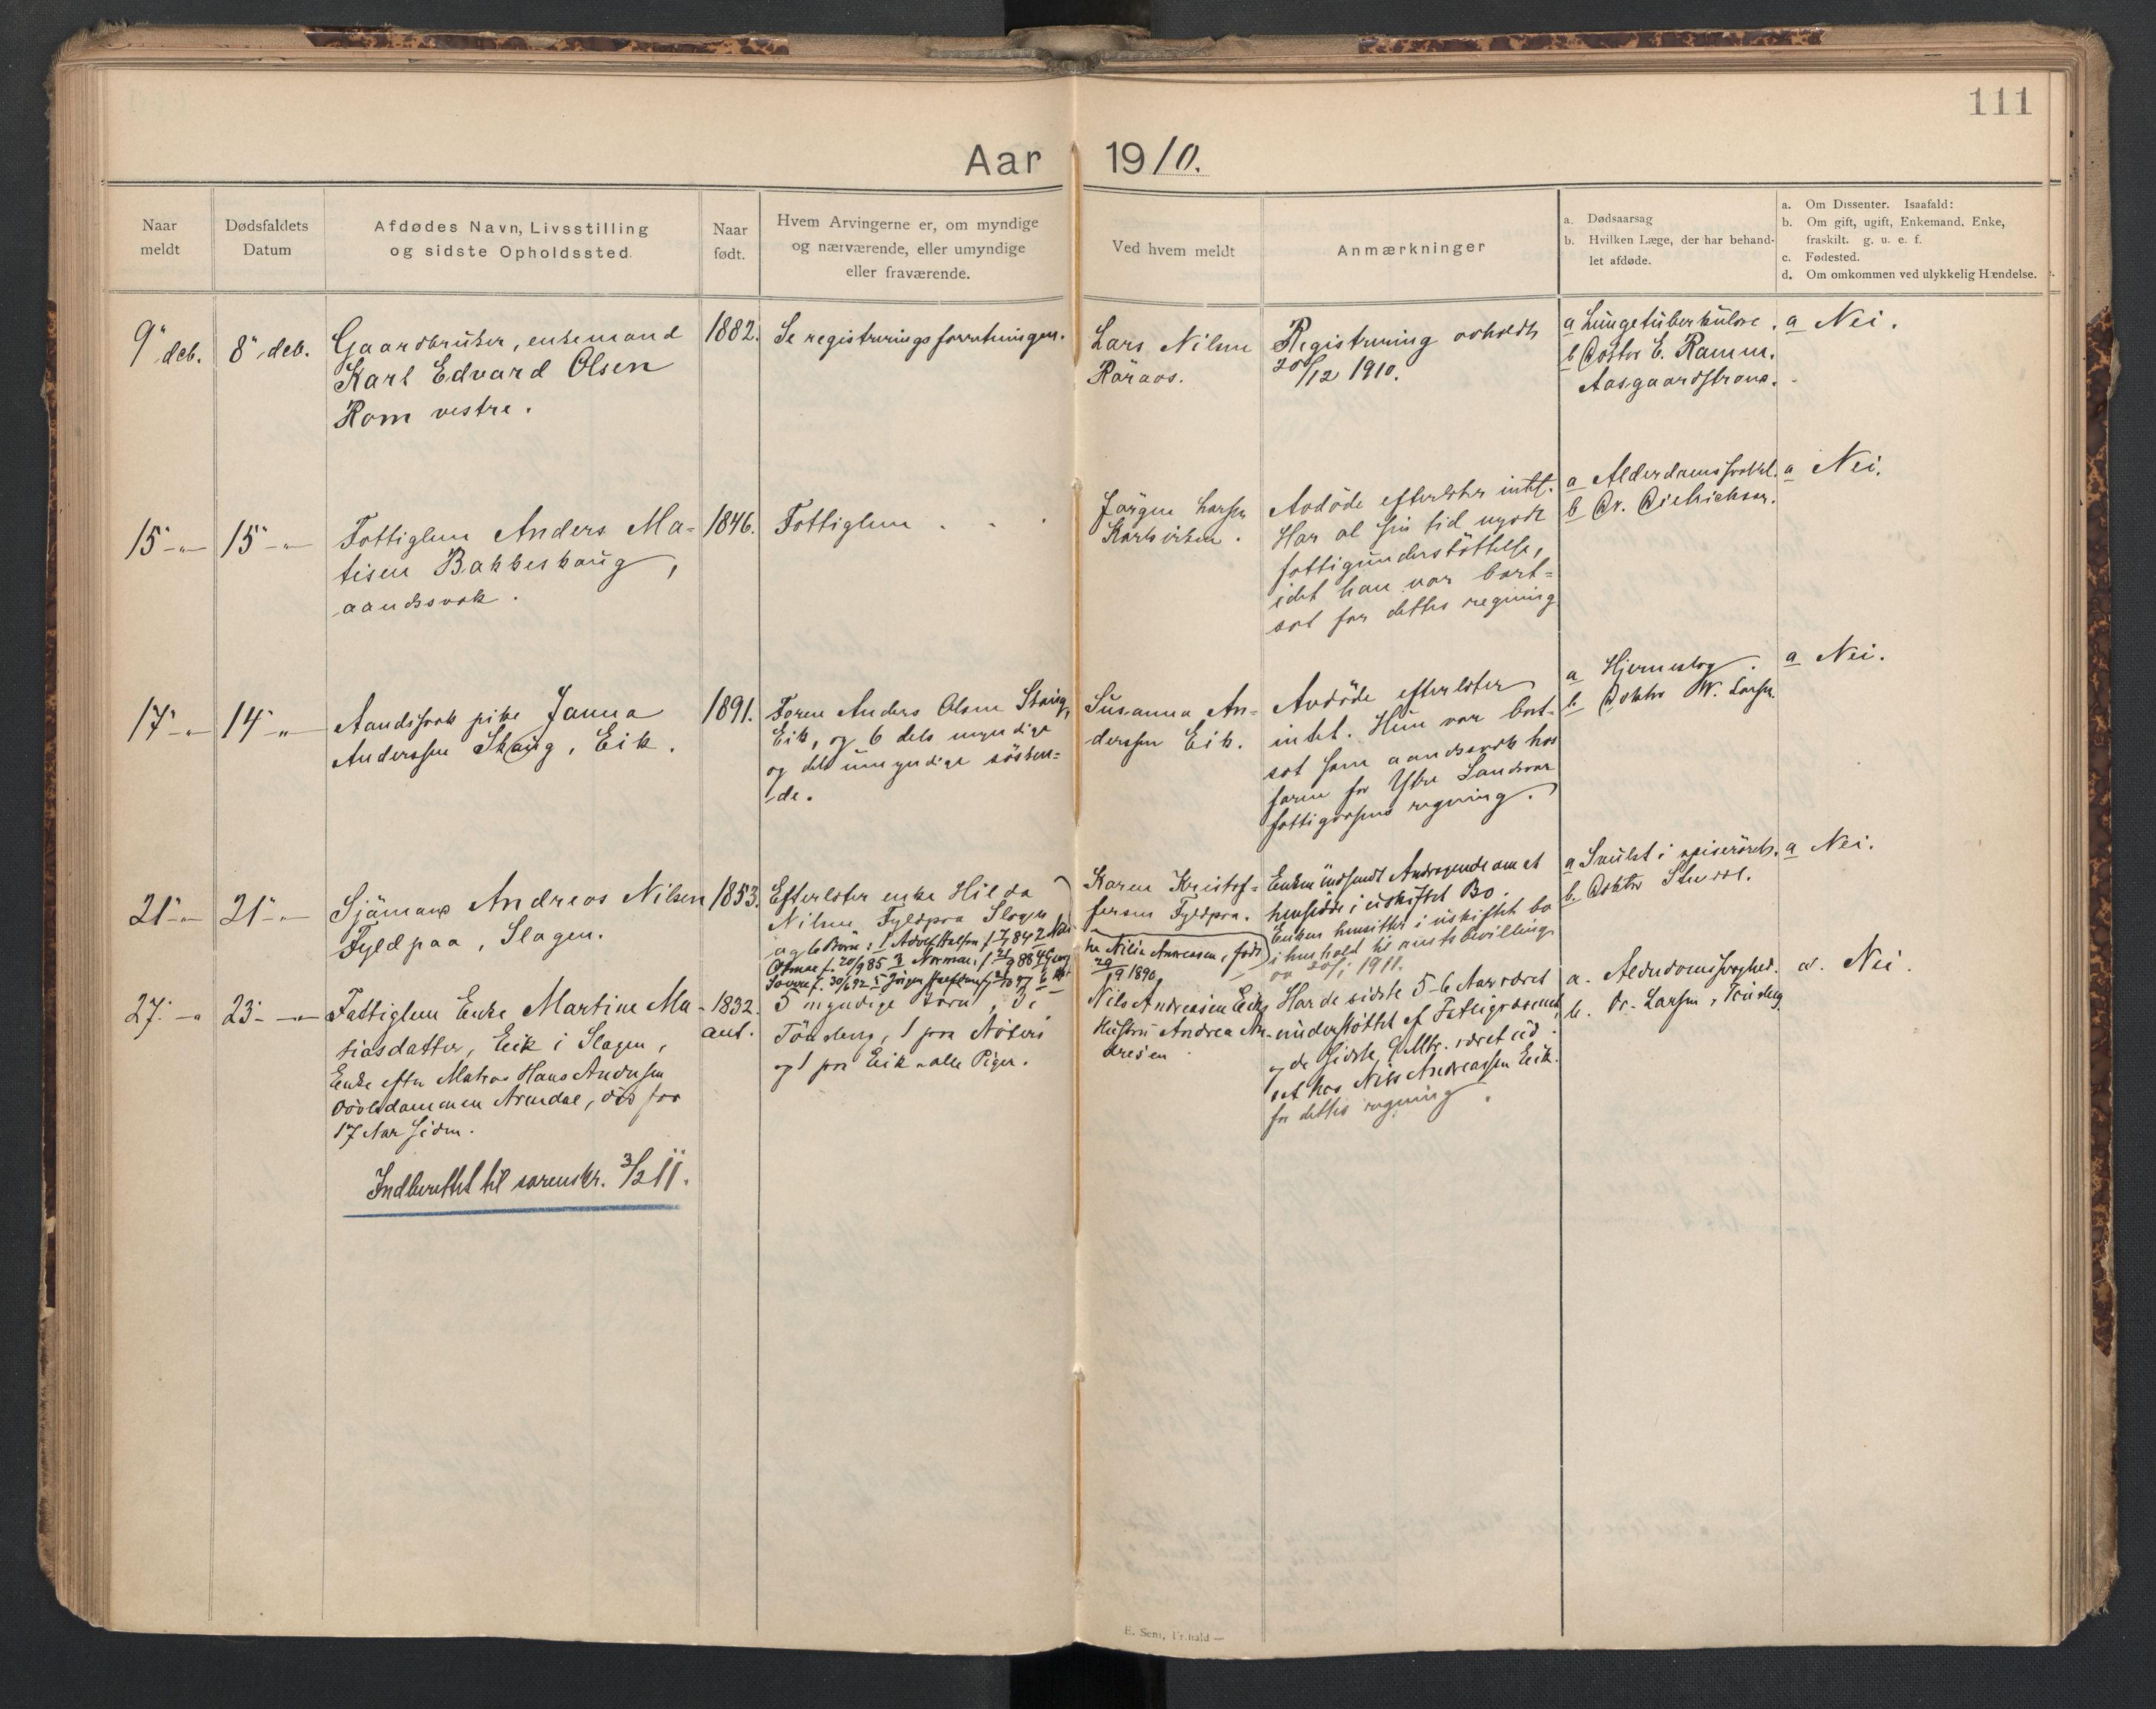 111
Aar 1910.
Naar meldt
Dødsfaldets Datum
Afdødes Navn, Livsstilling og sidste Opholdssted.
Naar født.
Hvem Arvingerne er, om myndige og nærværende, eller umyndige eller fraværende.
Ved hvem meldt
Anmærkninger
a. Dødsaarsag
b. Hvilken Læge, der har behandlet afdøde.
a. Om Dissenter. Isaafald:
b. Om gift, ugift, Enkemand, Enke, fraskilt. g. u. e. f.
c. Fødested.
d. Om omkommen ved ulykkelig Hændelse.
9" deb.
8" deb.
Gaardbruker, enkemand
Karl Edvard Olsen
Rom vestre.
1882.
Se registreringsforretningen.
Lars Nilsen
Råraas.
Registrering avholdt
20/12 1910.
a Lungetuberkulose.
b Doktor E. Ramm.
Aasgaardstrand.
a Nei.
15" -"-
15" -"-
Fattiglem Anders Ma-
tisen Bakkeskaug,
aandssvak.
1846.
Fattiglem
Jørgen Larsen
Karlsviken.
Avdöde efterlater intet.
Har al sin tid nydt
fattigunderstöttelse,
idet han var bort-
sat for dettes regning
a Alderdomssvakh.
b Dr. Dietrichson.
a Nei.
17" -"-
14" -"-
Aandssvak pike Janna
Anderssen Skaug, Eik.
1891.
Faren Anders Olsen Skaug,
Eik, og 6 dels myndige
og dels umyndige sösken-
de.
Susanna An-
derssen Eik.
Avdöde efterlater
intet. Hun var bort-
sat som aandssvak hos
faren for Ytre Sandsvær
fattigvæsens regning.
a Hjerneslag.
b Doktor W. Larsen.
a Nei.
21" -"-
21" -"-
Sjömand Andreas Nilsen
Fyldpaa, Slagen.
1853.
Efterlater enke Hilda
Nilsen Fyldpaa Slagen
og 6 Børn: 1 Adolf
20/9 85 3 Norman,
Karen Kristof-
fersen Fyldpaa.
Andreassen, født
29/9 1890,
Enken indsendt Andragende om at
hensidde i uskiftet Bo.
Enken hensitter i uskiftet bo
i henhold til amtsbevilling
av 20/1 1911.
a Svulst i spiserøret.
b. Doktor
a Nei.
27. -"-
23. -"-
Fattiglem Enke Martine Ma-
tiasdatter, Eik i Slagen,
Enke efter Matros Hans Andersen
Arendal, död for
17 Aar siden.
1832.
ant.
5 myndige börn, 3 i
Tönsberg, 1 paa Nöterö
og 1 paa Eik - alle Piger.
Nils Andreasen Eiks
Hustru Andrea An-
dresen
Har de sidste 5-6 Aar været
understöttet af Fattigvæsenet,
og de sidste 9 Mdr. været ud
sat hos Nils Andreassen Eik.
for dettes regning.
a. Alderdomssvaghed.
b. Dr. Larsen, Tönsberg
a. Nei.
Indberettet til sorenskr. 3/2 11.